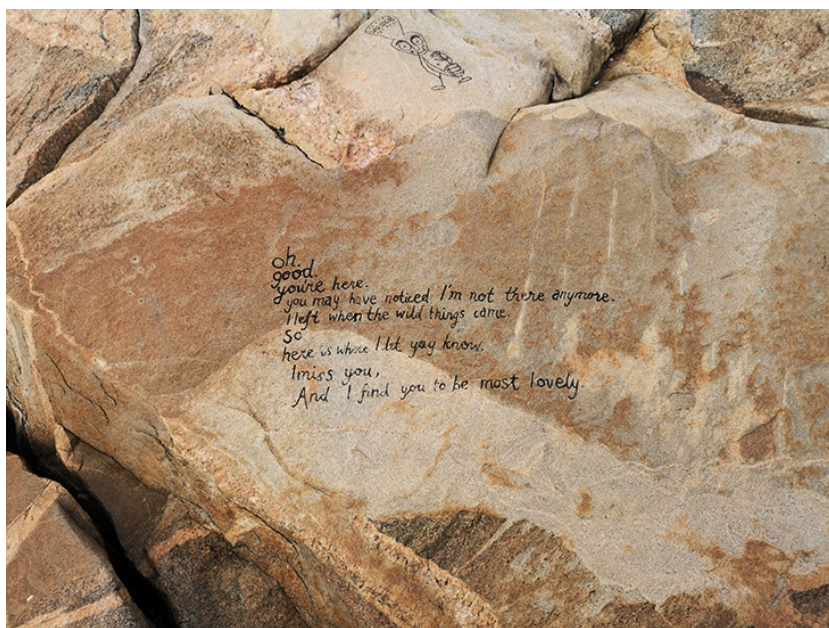 oh.
good.
you're here.
you may have noticed I'm not there anymore.
I left when the wild things came.
So
here is where I let yoy know.
I miss you,
And I find you to be most lovely.